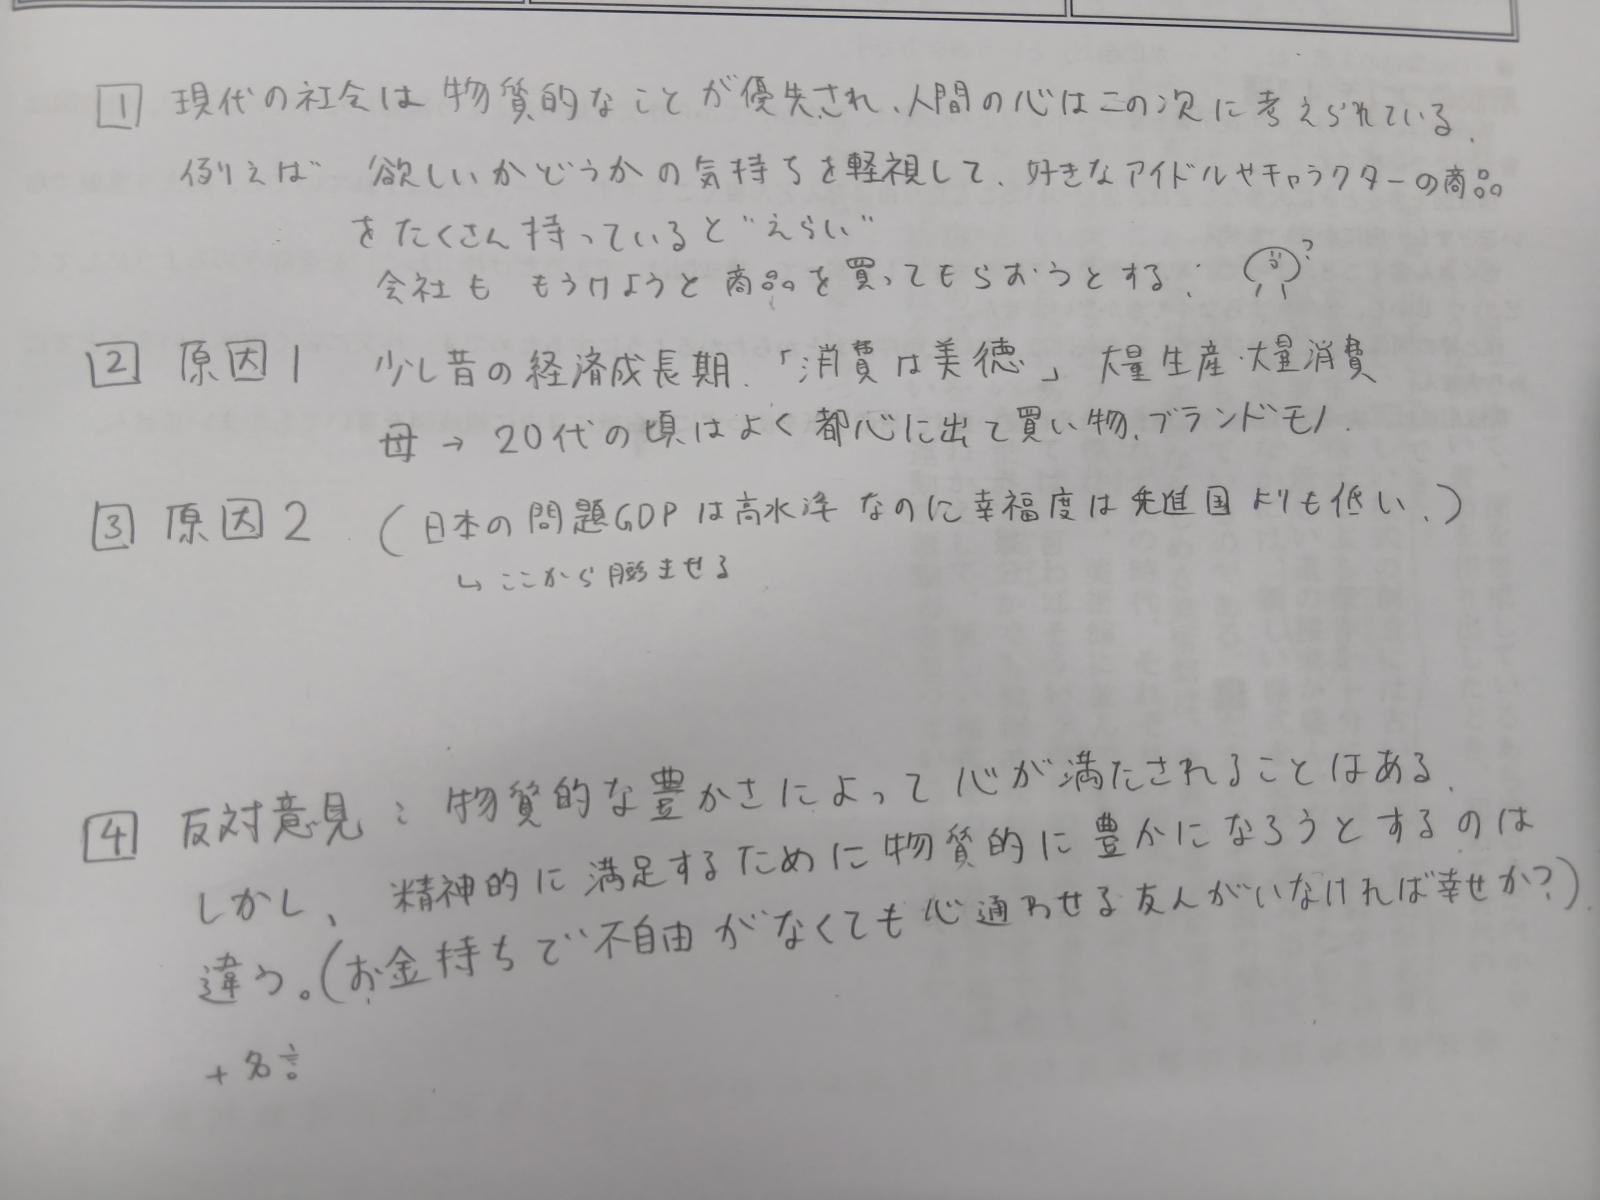 1 現代の社会は物質的なことが優先され、人間の心は二の次に考えられている。
例えば 欲しいかどうかの気持ちを軽視して、好きなアイドルやキャラクターの商品
をたくさん持っていると"えらい"
会社も もうけようと商品を買ってもらおうとする。 ?
2 原因1 少し昔の経済成長期、「消費は美徳」 大量生産・大量消費
母→20代の頃はよく都心に出て買い物、ブランドモノ.
3 原因2 (日本の問題GDPは高水準なのに幸福度は先進国よりも低い。)
↳ここから膨ませる
4 反対意見:物質的な豊かさによって心が満たされることはある。
しかし、精神的に満足するために物質的に豊かになろうとするのは
違う。(お金持ちで不自由がなくても心通わせる友人がいなければ幸せか?)
+名言